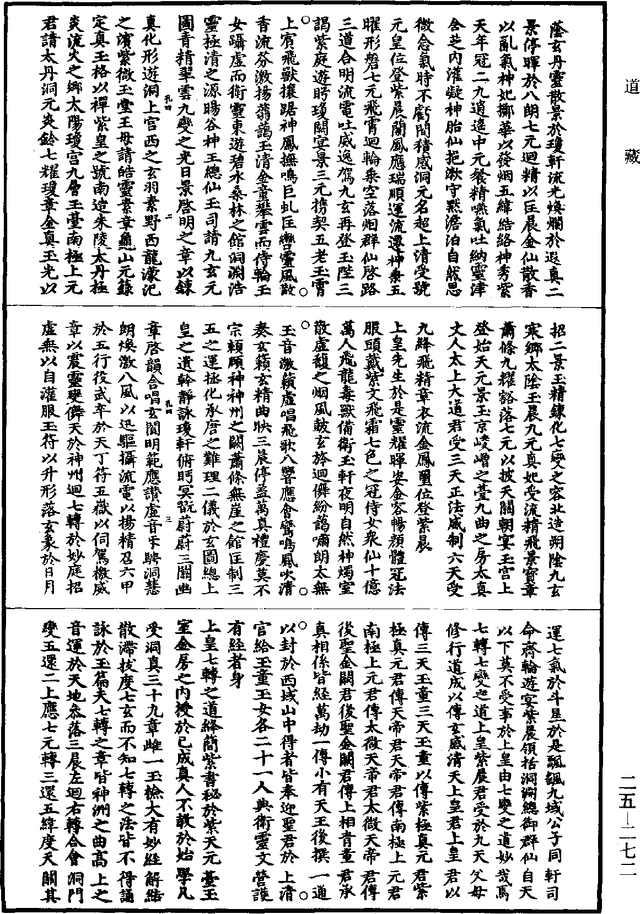 道藏
蔭玄丹靈散景於瓊軒流光煥爛於遐真二
景停暉於八朗七元迴精以匡晨金仙散香
以亂氣神妃擲華以發烟五緯結絡神秀紫
天年冠二九逍遙中元餐精嚥氣吐納靈津
含芝內灌凝神胎仙挹漱守默澹泊自然思
微念氣時不虧閑積感洞元名超上清受號
元皇位登紫晨蘭風應瑞順運流遷神乘五
曜形磐七元飛霄迴輪乘空落烟群仙啓路
三道合明流電吐威適駕九玄再登玉陛三
謁紫庭遊眄瓊闕宴景三元携契五老玉霄
上賓飛獸攫踞神鳳撫鳴巨虬匡轡靈風散
香流芬激揚翳藹玉清金童攀雲而侍輪玉
女躡虛而衛靈東遊碧水桑林之館洞淵浩
靈極清之源暘谷神王總仙玉司請九玄元
圖青精翠雲九變之光日景啓明之章以鍊
真化形遊洞上官西之玄羽素野西龍濛汜
之濱紫微玉堂王母請皓靈素章龜山元籙
定真玉格以禪紫皇之號南造朱陵太丹極
炎流火之鄉太陽瓊宮九層玉臺南極上元
君請太丹洞元炎鈴七耀瓊章金真玉光以
招二景玉精鍊化七變之容北造朔陰九玄
寒鄉太陰玉晨九元真妃受流精飛景寶章
蕭條九耀豁落七元以披天關朝宴玉宮上
登始天元景玉京崚嶒之臺九曲之房太真
丈人太上大道君受三天正法威制六天受
九絳飛精章衣流金鳳璽位登紫晨
上皇先生於是靈耀暉姿金容暢顏體冠法
服頭戴紫文飛霜七色之冠侍女衆仙十億
萬人飛龍毒獸備衛玉軒夜明自然神燭室
散虛馥之烟風皷玄旍迴僊紛藹嘯朗太無
玉音激籟虛唱飛歌八響應會鸞鳴鳳吹清
奏玄籟玄精曲映三晨停蓋萬真禮慶莫不
宗賴顧神神州之闕蕭條無崖之館匡制三
五之運拯化承唐之難理二儀於玄圖總上
皇之遺幹靜詠瓊軒俯眄冥翫蔚蔚三闕幽
章啓韻合唱玄閣明範應讚虛音朱聘洞慧
朗煥激八風以迅驅攝流電以揚精召六甲
於五行役武卒於天丁符五嶽以伺駕檄威
章以震靈髮僲天於神州迴七轉於妙庭招
虛無以自灌服玉符以升形落玄象於日月
運七氣於斗星於是飄飄九城公子同軒司
命齊輪遊宴紫晨領括洞淵總御群仙自天
以下莫不受事於上皇由七變之道妙哉焉
七轉七變之道上皇紫晨君受於九天父母
修行道成以傳玄感清天上皇君上皇君以
傳三天玉童三天玉童以傳紫極真元君紫
極真元君傳天帝君天帝君傳南極上元君
南極上元君傳太微天帝君太微天帝君傳
後聖金闕君後聖金闕君傳上相青童君承
真相係皆經萬劫一傳小有天王後撰一通
以封於西城山中得者皆奉迎聖君於上清
官給玉童玉女各二十一人典衛靈文營護
有經者身
上皇七轉之道絳簡紫書秘於紫天元臺玉
室金房之內授於已成真人不教於始學凡
受洞真三十九章雌一玉檢大有妙經解結
散滯拔度七玄而不知七轉之法皆不得誦
詠於玉篇夫七轉之章皆神洲之曲高上之
音運於天地叅落三晨左迴右轉合會洞門
變五還二上應七元轉三還五緯度天關其
二五—二七二